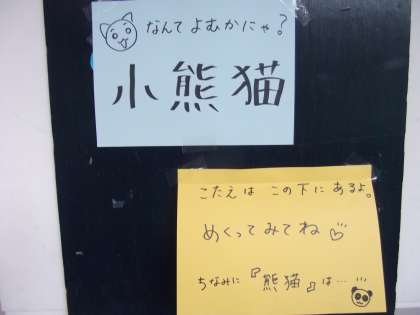 なんてよむかにゃ?
小熊猫
こたえは この下に あるよ。
めくってみてね
ちなみに『熊猫』は…